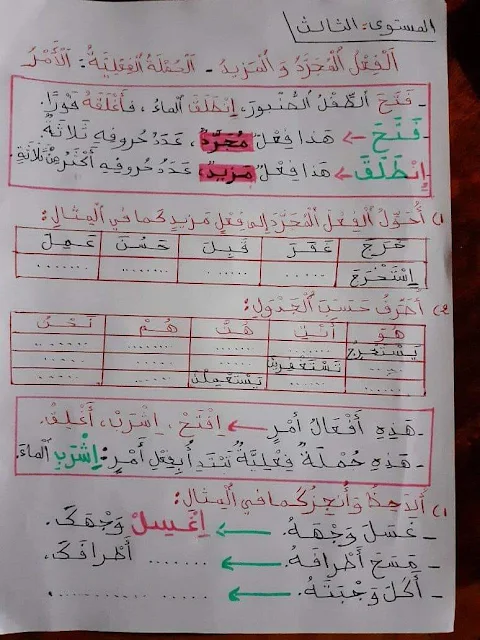 المستوى: الثالث
اَلْفِعْلُ الْمُجَرَّدُ وَ الْمَزِيدُ - الْجُمْلَةُ الْفِعْلِيَّةُ: اَلْأَمْرُ
- فَتَحَ الطِّفْلُ الصُّنْبُورَ، اِنْطَلَقَ الْمَاءُ، فَأَغْلَقَهُ فَوْرًا.
فَتَحَ ← هَذَا فِعْلٌ مُجَرَّدٌ، عَدَدُ حُرُوفِهِ ثَلَاثَةٌ.
اِنْطَلَقَ ← هَذَا فِعْلٌ مَزِيدٌ، عَدَدُ حُرُوفِهِ أَكْثَرُ مِنْ ثَلَاثَةٍ.
1) أُحَوِّلُ الْفِعْلَ الْمُجَرَّدَ إِلَى فِعْلٍ مَزِيدٍ كَمَا فِي الْمِثَالِ:
خَرَجَ غَفَرَ قَبِلَ حَسُنَ عَمِلَ
اِسْتَخْرَجَ ...... ...... ...... ......
2) أُصَرِّفُ حَسَبَ الْجَدْوَلِ:
هُوَ أَنْتِ هُنَّ هُمْ نَحْنُ
يَسْتَخْرِجُ ...... ...... ...... ......
...... تَسْتَغْفِرِينَ ...... ...... ......
...... ...... يَسْتَعْمِلْنَ ...... ......
- هَذِهِ أَفْعَالُ أَمْرٍ ← اِفْتَحْ، اِشْرَبْ، أَغْلِقْ.
- هَذِهِ جُمْلَةٌ فِعْلِيَّةٌ تَبْتَدِأُ بِفِعْلِ أَمْرٍ: اِشْرَبِ الْمَاءَ.
1) أُلَاحِظُ وَأُنْجِزُ كَمَا فِي الْمِثَالِ:
- غَسَلَ وَجْهَهُ. ← اِغْسِلْ وَجْهَكَ.
- مَسَحَ أَطْرَافَهُ. ← ....... أَطْرَافَكَ.
- أَكَلَ وَجْبَتَهُ. ← ....... .......